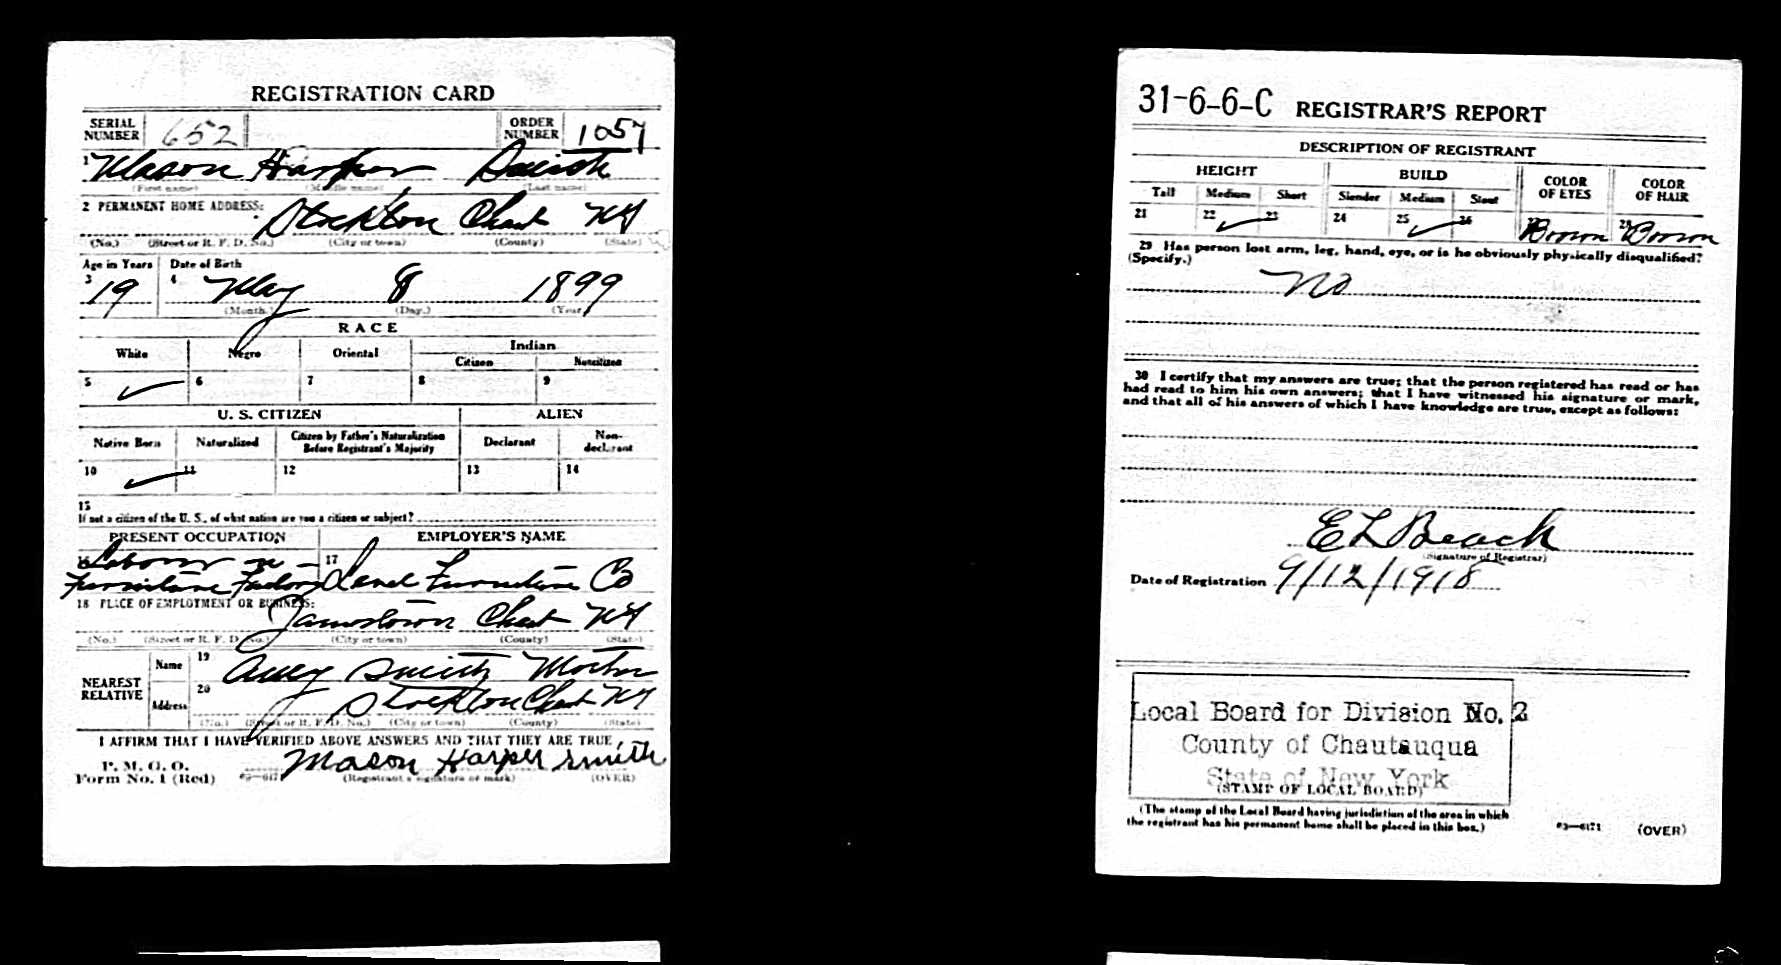 REGISTRATION CARD
SERIAL NUMBER 652 ORDER NUMBER 1057
1 Mason Harper Smith
(First name) (Middle name) (Last name)
2 PERMANENT HOME ADDRESS:
Stockton Chaut NY
(No.) (Street or R. F. D. No.) (City or town) (County) (State)
Age in Years Date of Birth
3 19 4 May 8 1899
(Month.) (Day.) (Year)
RACE
White Negro Oriental Indian
Citizen Noncitizen
5 ✓ 6 7 8 9
U. S. CITIZEN ALIEN
Native Born Naturalized Citizen by Father's Naturalization Before Registrant's Majority Declarant Non-declarant
10 ✓ 11 12 13 14
15
If not a citizen of the U. S., of what nation are you a citizen or subject?
PRESENT OCCUPATION EMPLOYER'S NAME
16 Laborer in 17
Furniture Factory Furniture Co
18 PLACE OF EMPLOYMENT OR BUSINESS:
Jamestown Chaut NY
(No.) (Street or R. F. D. No.) (City or town) (County) (State)
NEAREST RELATIVE
Name 19 Smith Mother
Address 20 Stockton Chaut NY
(No.) (Street or R. F. D. No.) (City or town) (County) (State)
I AFFIRM THAT I HAVE VERIFIED ABOVE ANSWERS AND THAT THEY ARE TRUE
P. M. G. O.
Form No. 1 (Red) Mason Harper Smith
(Registrant's signature or mark) (OVER)
31-6-6-C REGISTRAR'S REPORT
DESCRIPTION OF REGISTRANT
HEIGHT BUILD COLOR OF EYES COLOR OF HAIR
Tall Medium Short Slender Medium Stout
21 22 ✓ 23 24 25 ✓ 26 27 Brown 28 Brown
29 Has person lost arm, leg, hand, eye, or is he obviously physically disqualified?
(Specify.)
No
30 I certify that my answers are true; that the person registered has read or has
had read to him his own answers; that I have witnessed his signature or mark,
and that all of his answers of which I have knowledge are true, except as follows:
E L Beach
(Signature of Registrar)
Date of Registration 9/12/1918
Local Board for Division No. 2
County of Chautauqua
State of New York
(STAMP OF LOCAL BOARD)
(The stamp of the Local Board having jurisdiction of the area in which
the registrant has his permanent home shall be placed in this box.)
03—6171 (OVER)